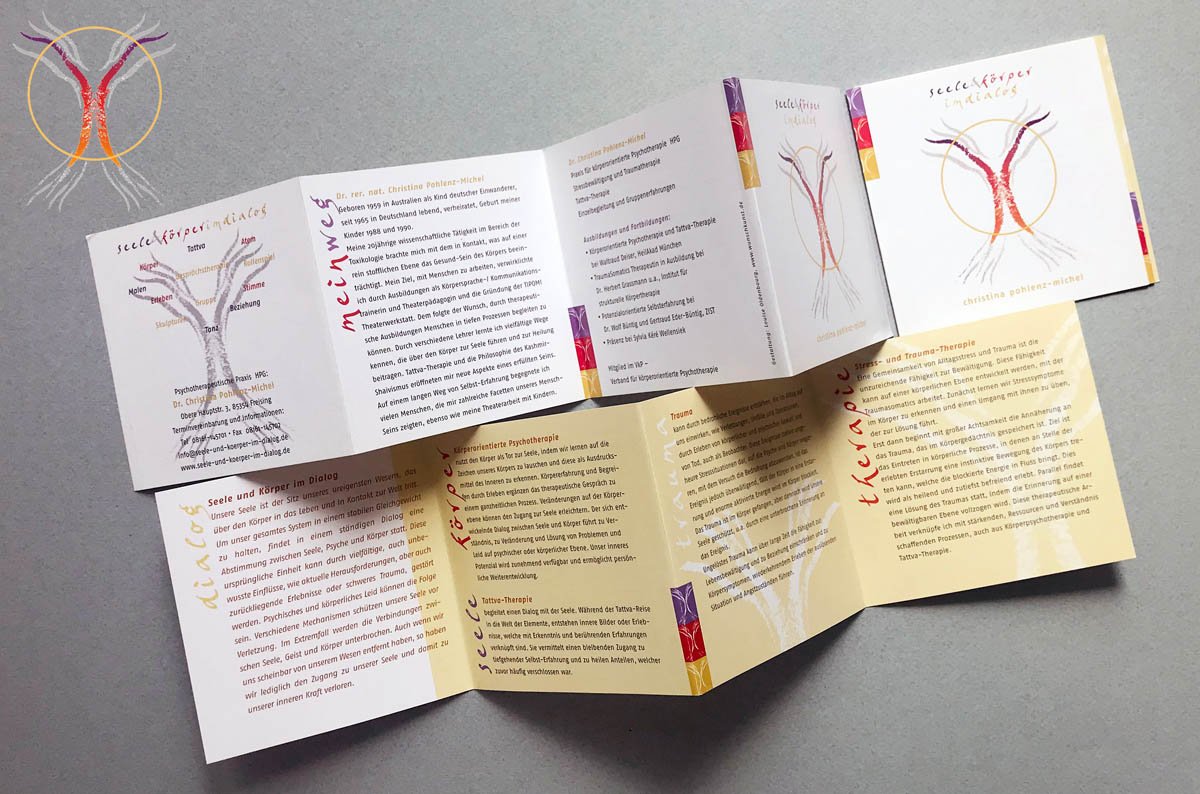 seele&körperimdialog
Tattva
Körper
Atem
Gesprächstherapie
Rollenspiel
Malen
Erleben
Gruppe
Stimme
Skulpturen
Beziehung
Tanz
Psychotherapeutische Praxis HPG:
Dr. Christina Pohlenz-Michel
Obere Hauptstr. 3, 85354 Freising
Terminvereinbarung und Informationen:
Tel 08161-145701 • Fax 08161-145702
info@seele-und-koerper-im-dialog.de
www.seele-und-koerper-im-dialog.de
meinweg
Dr. rer. nat. Christina Pohlenz-Michel
Geboren 1959 in Australien als Kind deutscher Einwanderer,
seit 1965 in Deutschland lebend, verheiratet, Geburt meiner
Kinder 1988 und 1990.
Meine 20jährige wissenschaftliche Tätigkeit im Bereich der
Toxikologie brachte mich mit dem in Kontakt, was auf einer
rein stofflichen Ebene das Gesund-Sein des Körpers beein-
trächtigt. Mein Ziel, mit Menschen zu arbeiten, verwirklichte
ich durch Ausbildungen als Körpersprache-/ Kommunikations-
trainerin und Theaterpädagogin und die Gründung der TIPOMI
Theaterwerkstatt. Dem folgte der Wunsch, durch therapeuti-
sche Ausbildungen Menschen in tiefen Prozessen begleiten zu
können. Durch verschiedene Lehrer lernte ich vielfältige Wege
kennen, die über den Körper zur Seele führen und zur Heilung
beitragen. Tattva-Therapie und die Philosophie des Kashmir-
Shaivismus eröffneten mir neue Aspekte eines erfüllten Seins.
Auf einem langen Weg von Selbst-Erfahrung begegnete ich
vielen Menschen, die mir zahlreiche Facetten unseres Mensch-
Seins zeigten, ebenso wie meine Theaterarbeit mit Kindern.
Dr. Christina Pohlenz-Michel
Praxis für körperorientierte Psychotherapie HPG
Stressbewältigung und Traumatherapie
Tattva-Therapie
Einzelbegleitung und Gruppenerfahrungen
Ausbildungen und Fortbildungen:
• Körperorientierte Psychotherapie und Tattva-Therapie
bei Waltraud Deiser, HeilAkad München
• TraumaSomatics Therapeutin in Ausbildung bei
Dr. Herbert Grassmann u.a., Institut für
strukturelle Körpertherapie
• Potenzialorientierte Selbsterfahrung bei
Dr. Wolf Büntig und Gertraud Eder-Büntig, ZIST
• Präsenz bei Sylvia Kéré Wellensiek
Mitglied im VKP –
Verband für körperorientierte Psychotherapie
Gestaltung: Louise Oldenbourg, www.wunschkunst.de
seele&körper
imdialog
christina pohlenz-michel
seele&körper
imdialog
christina pohlenz-michel
dialog
Seele und Körper im Dialog
Unsere Seele ist der Sitz unseres ureigensten Wesens, das
über den Körper in das Leben und in Kontakt zur Welt tritt.
Um unser gesamtes System in einem stabilen Gleichgewicht
zu halten, findet in einem ständigen Dialog eine
Abstimmung zwischen Seele, Psyche und Körper statt. Diese
ursprüngliche Einheit kann durch vielfältige, auch unbe-
wusste Einflüsse, wie aktuelle Herausforderungen, aber auch
zurückliegende Erlebnisse oder schweres Trauma, gestört
werden. Psychisches und körperliches Leid können die Folge
sein. Verschiedene Mechanismen schützen unsere Seele vor
Verletzung. Im Extremfall werden die Verbindungen zwi-
schen Seele, Geist und Körper unterbrochen. Auch wenn wir
uns scheinbar von unserem Wesen entfernt haben, so haben
wir lediglich den Zugang zu unserer Seele und damit zu
unserer inneren Kraft verloren.
körper
Körperorientierte Psychotherapie
nutzt den Körper als Tor zur Seele, indem wir lernen auf die
Zeichen unseres Körpers zu lauschen und diese als Ausdrucks-
mittel des Inneren zu erkennen. Körpererfahrung und Begrei-
fen durch Erleben ergänzen das therapeutische Gespräch zu
einem ganzheitlichen Prozess. Veränderungen auf der Körper-
ebene können den Zugang zur Seele erleichtern. Der sich ent-
wickelnde Dialog zwischen Seele und Körper führt zu Ver-
ständnis, zu Veränderung und Lösung von Problemen und
Leid auf psychischer oder körperlicher Ebene. Unser inneres
Potenzial wird zunehmend verfügbar und ermöglicht persön-
liche Weiterentwicklung.
seele
Tattva-Therapie
begleitet einen Dialog mit der Seele. Während der Tattva-Reise
in die Welt der Elemente, entstehen innere Bilder oder Erleb-
nisse, welche mit Erkenntnis und berührenden Erfahrungen
verknüpft sind. Sie vermittelt einen bleibenden Zugang zu
tiefgehender Selbst-Erfahrung und zu heilen Anteilen, welcher
zuvor häufig verschlossen war.
trauma
Trauma
kann durch bedrohliche Ereignisse entstehen, die im Alltag auf
uns einwirken, wie Verletzungen, Unfälle und Operationen,
durch Erleben von körperlicher und psychischer Gewalt und
von Tod, auch als Beobachter. Diese Ereignisse rufen unge-
heure Stresssituationen dar, auf die Psyche und Körper reagie-
ren, mit dem Versuch die Bedrohung abzuwenden. Ist das
Ereignis jedoch überwältigend, fällt der Körper in eine Erstar-
rung und enorme aktivierte Energie wird im Körper blockiert.
Das Trauma ist im Körper gefangen, aber dennoch wird unsere
Seele geschützt, u.a. durch eine unterbrochene Erinnerung an
das Ereignis.
Ungelöstes Trauma kann über lange Zeit die Fähigkeit zur
Lebensbewältigung und zu Beziehung einschränken und zu
Körpersymptomen, wiederkehrendem Erleben der auslösenden
Situation und Angstzuständen führen.
therapie
Stress- und Trauma-Therapie
Eine Gemeinsamkeit von Alltagsstress und Trauma ist die
unzureichende Fähigkeit zur Bewältigung. Diese Fähigkeit
kann auf einer körperlichen Ebene entwickelt werden, mit der
Traumasomatics arbeitet. Zunächst lernen wir Stresssymptome
im Körper zu erkennen und einen Umgang mit ihnen zu üben,
der zur Lösung führt.
Erst dann beginnt mit großer Achtsamkeit die Annäherung an
das Trauma, das im Körpergedächtnis gespeichert ist. Ziel ist
das Eintreten in körperliche Prozesse, in denen an Stelle der
erlebten Erstarrung eine instinktive Bewegung des Körpers tre-
ten kann, welche die blockierte Energie in Fluss bringt. Dies
wird als heilend und zutiefst befreiend erlebt. Parallel findet
eine Lösung des Traumas statt, indem die Erinnerung auf einer
bewältigbaren Ebene vollzogen wird. Diese therapeutische Ar-
beit verknüpfe ich mit stärkenden, Ressourcen und Verständnis
schaffenden Prozessen, auch aus Körperpsychotherapie und
Tattva-Therapie.